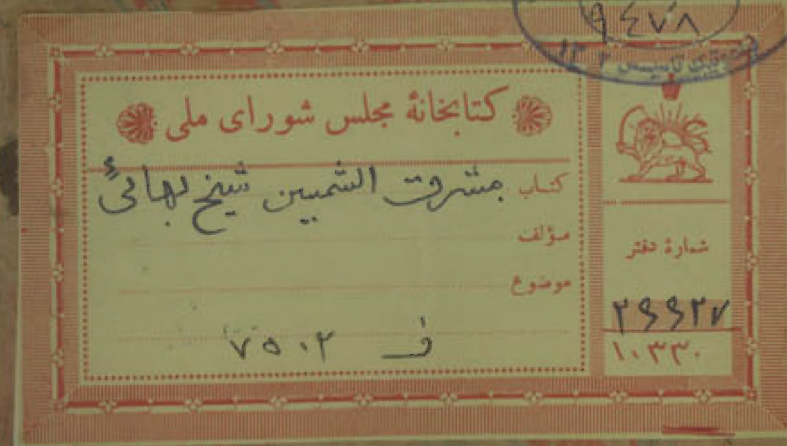 ۹٤۷۸
کتابخانهٔ مجلس شورای ملی
کتاب مشرق الشمسین شیخ بهائی
مؤلف
موضوع
ف ۷۵۰۲
شمارهٔ دفتر
۲۹۹۲۷
۱۰۳۳۰